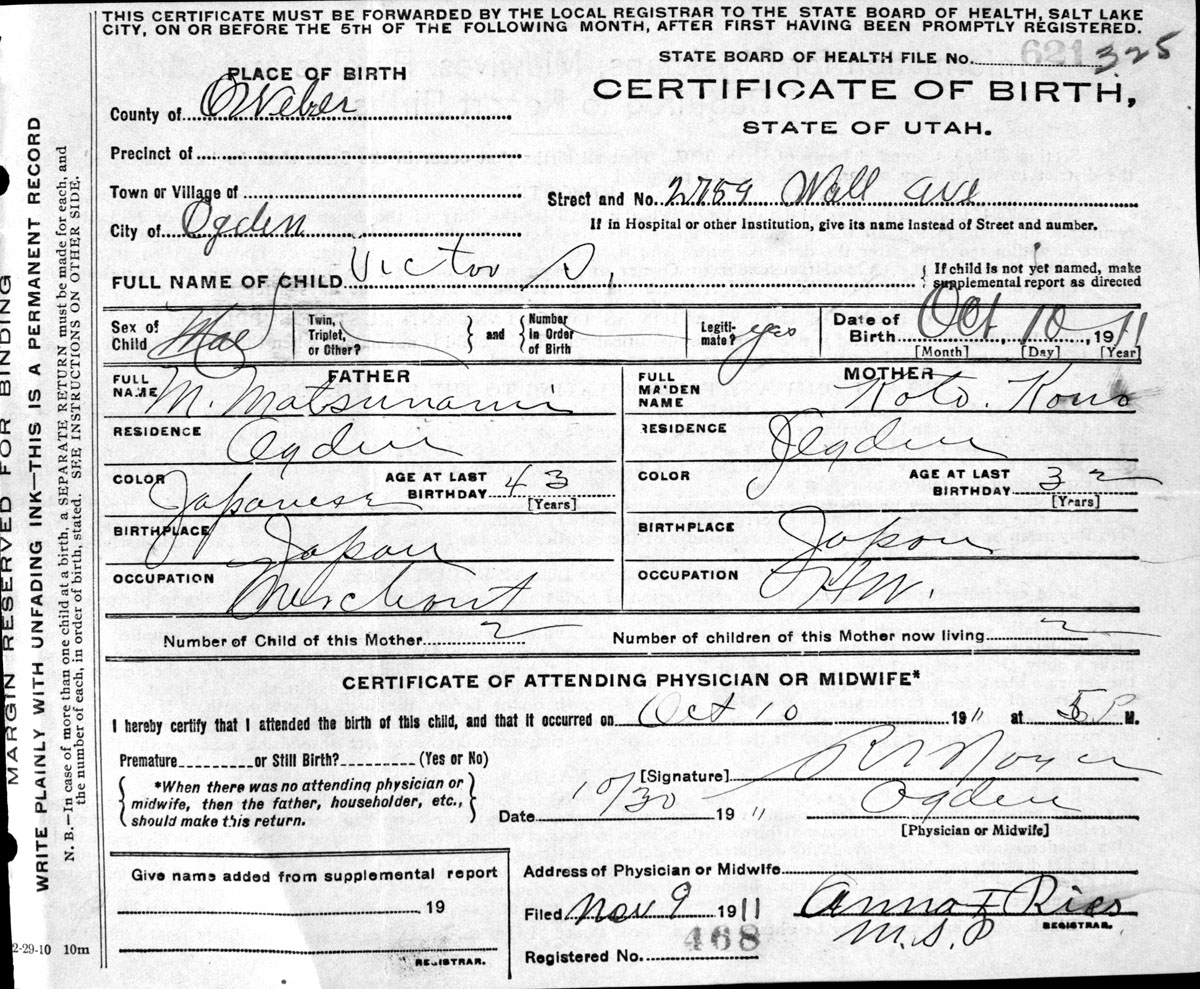 THIS CERTIFICATE MUST BE FORWARDED BY THE LOCAL REGISTRAR TO THE STATE BOARD OF HEALTH, SALT LAKE
CITY, ON OR BEFORE THE 5TH OF THE FOLLOWING MONTH, AFTER FIRST HAVING BEEN PROMPTLY REGISTERED.
STATE BOARD OF HEALTH FILE No. 621 325
PLACE OF BIRTH
CERTIFICATE OF BIRTH,
County of Weber
STATE OF UTAH.
Precinct of
Town or Village of
Street and No. 2759 Wall ave
City of Ogden
If in Hospital or other Institution, give its name instead of Street and number.
FULL NAME OF CHILD Victor
{ If child is not yet named, make
supplemental report as directed
Sex of Child Mae
Twin, Triplet, or Other? } and { Number in Order of Birth
Legiti- mate? yes
Date of Birth Oct, 10, 1911
[Month] [Day] [Year]
FATHER
FULL NAME M. Matsunami
RESIDENCE Ogden
COLOR Japanese
AGE AT LAST BIRTHDAY 43
[Years]
BIRTHPLACE Japan
OCCUPATION Merchant
MOTHER
FULL MAIDEN NAME Koto. Kono
RESIDENCE Ogden
COLOR
AGE AT LAST BIRTHDAY 32
[Years]
BIRTHPLACE Japan
OCCUPATION H.W.
Number of Child of this Mother 2 Number of children of this Mother now living 2
CERTIFICATE OF ATTENDING PHYSICIAN OR MIDWIFE*
I hereby certify that I attended the birth of this child, and that it occurred on Oct 10 1911 at 5 P M.
Premature or Still Birth? (Yes or No)
{ *When there was no attending physician or
midwife, then the father, householder, etc.,
should make this return. }
[Signature]
Date 10/30 1911 Ogden
[Physician or Midwife]
Give name added from supplemental report
19
REGISTRAR.
Address of Physician or Midwife
Filed Nov 9 1911 Anna F Ries
REGISTRAR.
468
Registered No.
2-29-10 10m
MARGIN RESERVED FOR BINDING
WRITE PLAINLY WITH UNFADING INK—THIS IS A PERMANENT RECORD
N. B.—In case of more than one child at a birth, a SEPARATE RETURN must be made for each, and
the number of each, in order of birth, stated. SEE INSTRUCTIONS ON OTHER SIDE.